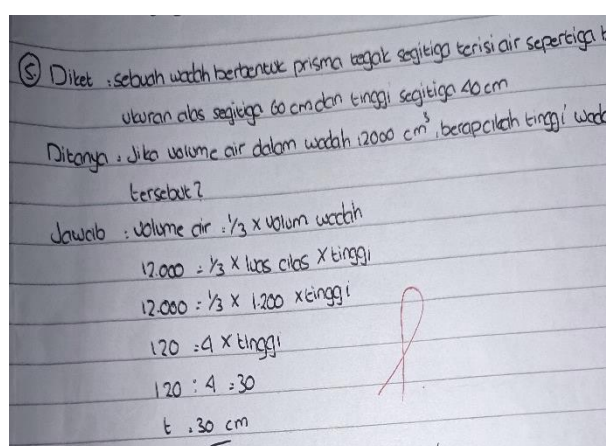 ⑤ Diket : sebuah wadah berbentuk prisma tegak segitiga terisi air sepertiga
ukuran alas segitiga 60 cm dan tinggi segitiga 40 cm
Ditanya : Jika volume air dalam wadah 12000 cm³, berapakah tinggi
tersebut?
Jawab : Volume air : 1/3 x volum wadah
12.000 = 1/3 x luas alas x tinggi
12.000 = 1/3 x 1.200 x tinggi
120 = 4 x tinggi
120 : 4 = 30
t . 30 cm